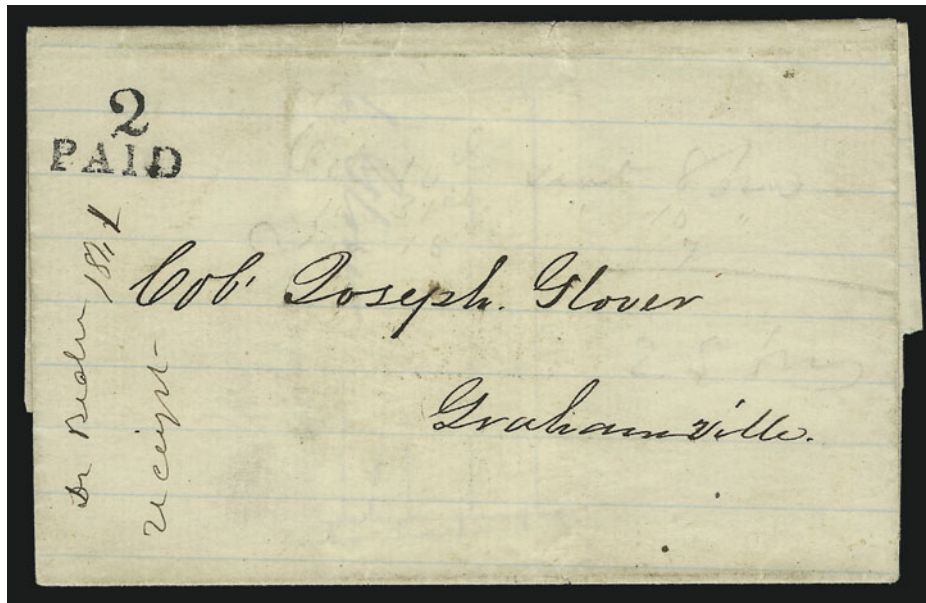 2
PAID
Col Joseph. Glover
Grahamville.
Dr
receipt